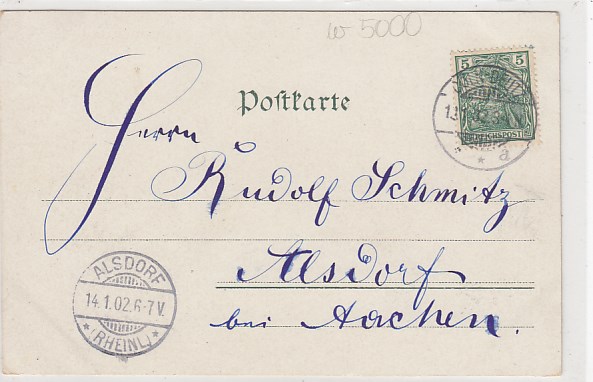 w 5000
5
REICHSPOST
Postkarte
Herrn
Rudolf Schmitz
Alsdorf
bei Aachen.
ALSDORF
14.1.02.6-7V.
* (RHEINL.) *
* a